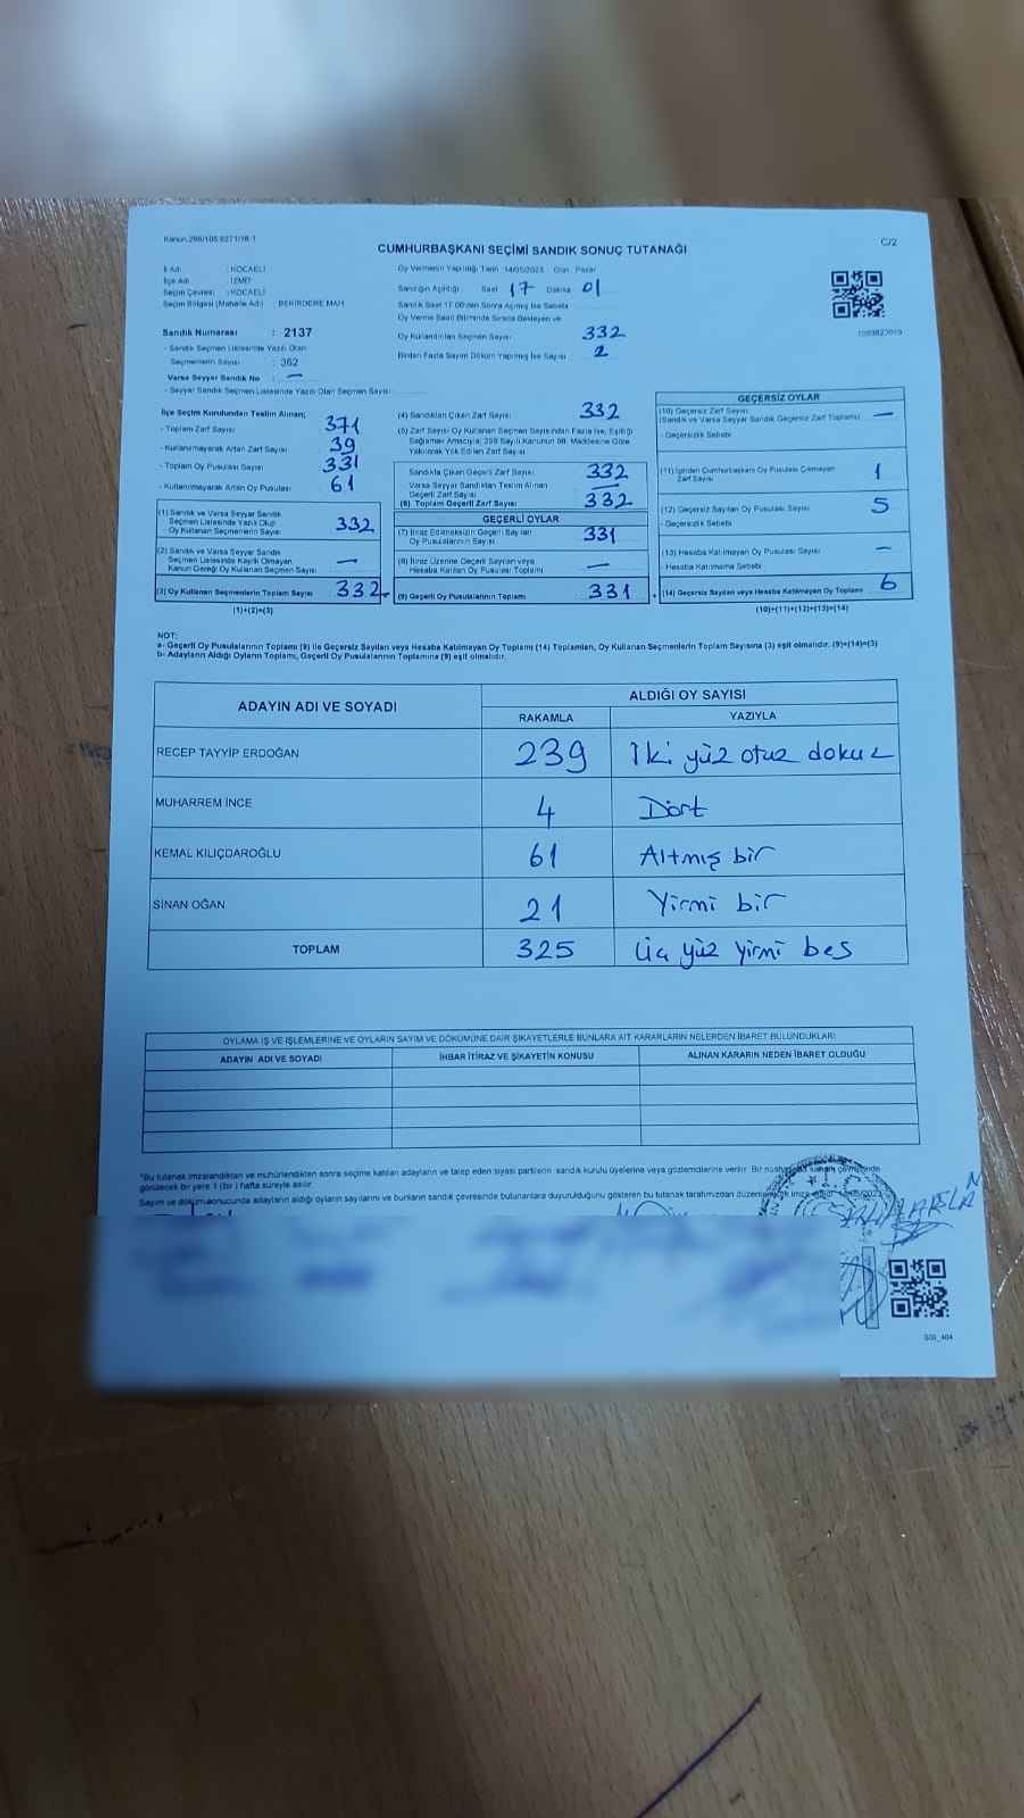 Kanun 298/105 6271/18-1
C/2
CUMHURBAŞKANI SEÇİMİ SANDIK SONUÇ TUTANAĞI
İl Adı : KOCAELİ
İlçe Adı : İZMİT
Seçim Çevresi : KOCAELİ
Seçim Bölgesi (Mahalle Adı) : BEKİRDERE MAH.
Sandık Numarası : 2137
- Sandık Seçmen Listesinde Yazılı Olan
Seçmenlerin Sayısı : 362
Varsa Seyyar Sandık No : —
- Seyyar Sandık Seçmen Listesinde Yazılı Olan Seçmen Sayısı
Oy Vermenin Yapıldığı Tarih : 14/05/2023 Gün : Pazar
Sandığın Açıldığı : Saat 17 Dakika 01
Sandık Saat 17.00'den Sonra Açılmış İse Sebebi
Oy Verme Saati Bitiminde Sırada Bekleyen ve
Oy Kullandırılan Seçmen Sayısı : 332
Birden Fazla Sayım Döküm Yapılmış İse Sayısı : 2
İlçe Seçim Kurulundan Teslim Alınan;
- Toplam Zarf Sayısı 371
- Kullanılmayarak Artan Zarf Sayısı 39
- Toplam Oy Pusulası Sayısı 331
- Kullanılmayarak Artan Oy Pusulası 61
(1) Sandık ve Varsa Seyyar Sandık
Seçmen Listesinde Yazılı Olup
Oy Kullanan Seçmenlerin Sayısı 332
(2) Sandık ve Varsa Seyyar Sandık
Seçmen Listesinde Kayıtlı Olmayan
Kanun Gereği Oy Kullanan Seçmen Sayısı —
(3) Oy Kullanan Seçmenlerin Toplam Sayısı 332
(1)+(2)=(3)
(4) Sandıktan Çıkan Zarf Sayısı 332
(5) Zarf Sayısı Oy Kullanan Seçmen Sayısından Fazla İse, Eşitliği
Sağlamak Amacıyla, 298 Sayılı Kanunun 98. Maddesine Göre
Yakılarak Yok Edilen Zarf Sayısı
Sandıkta Çıkan Geçerli Zarf Sayısı 332
Varsa Seyyar Sandıktan Teslim Alınan
Geçerli Zarf Sayısı —
(6) Toplam Geçerli Zarf Sayısı 332
GEÇERLİ OYLAR
(7) İtiraz Edilmeksizin Geçerli Sayılan
Oy Pusulalarının Sayısı 331
(8) İtiraz Üzerine Geçerli Sayılan veya
Hesaba Katılan Oy Pusulası Toplamı —
(9) Geçerli Oy Pusulalarının Toplamı 331
GEÇERSİZ OYLAR
(10) Geçersiz Zarf Sayısı
(Sandık ve Varsa Seyyar Sandık Geçersiz Zarf Toplamı) —
- Geçersizlik Sebebi
(11) İçinden Cumhurbaşkanı Oy Pusulası Çıkmayan
Zarf Sayısı 1
(12) Geçersiz Sayılan Oy Pusulası Sayısı 5
- Geçersizlik Sebebi
(13) Hesaba Katılmayan Oy Pusulası Sayısı —
- Hesaba Katılmama Sebebi
(14) Geçersiz Sayılan veya Hesaba Katılmayan Oy Toplamı 6
(10)+(11)+(12)+(13)=(14)
NOT:
a- Geçerli Oy Pusulalarının Toplamı (9) ile Geçersiz Sayılan veya Hesaba Katılmayan Oy Toplamı (14) Toplamları, Oy Kullanan Seçmenlerin Toplam Sayısına (3) eşit olmalıdır. (9)+(14)=(3)
b- Adayların Aldığı Oyların Toplamı, Geçerli Oy Pusulalarının Toplamına (9) eşit olmalıdır.
ADAYIN ADI VE SOYADI
ALDIĞI OY SAYISI
RAKAMLA YAZIYLA
RECEP TAYYİP ERDOĞAN 239 İki yüz otuz dokuz
MUHARREM İNCE 4 Dört
KEMAL KILIÇDAROĞLU 61 Altmış bir
SİNAN OĞAN 21 Yirmi bir
TOPLAM 325 Üç yüz yirmi beş
OYLAMA İŞ VE İŞLEMLERİNE VE OYLARIN SAYIM VE DÖKÜMÜNE DAİR ŞİKAYETLERLE BUNLARA AİT KARARLARIN NELERDEN İBARET BULUNDUKLARI
ADAYIN ADI VE SOYADI İHBAR İTİRAZ VE ŞİKAYETİN KONUSU ALINAN KARARIN NEDEN İBARET OLDUĞU
*Bu tutanak imzalandıktan ve mühürlendikten sonra seçime katılan adayların ve talep eden siyasi partilerin sandık kurulu üyelerine veya gözlemcilerine verilir. Bir nüshası da sandık çevresinde
görülecek bir yere 1 (bir) hafta süreyle asılır.
Sayım ve döküm sonucunda adayların aldığı oyların sayılarını ve bunların sandık çevresinde bulunanlara duyurulduğunu gösteren bu tutanak tarafımızdan
T.C.